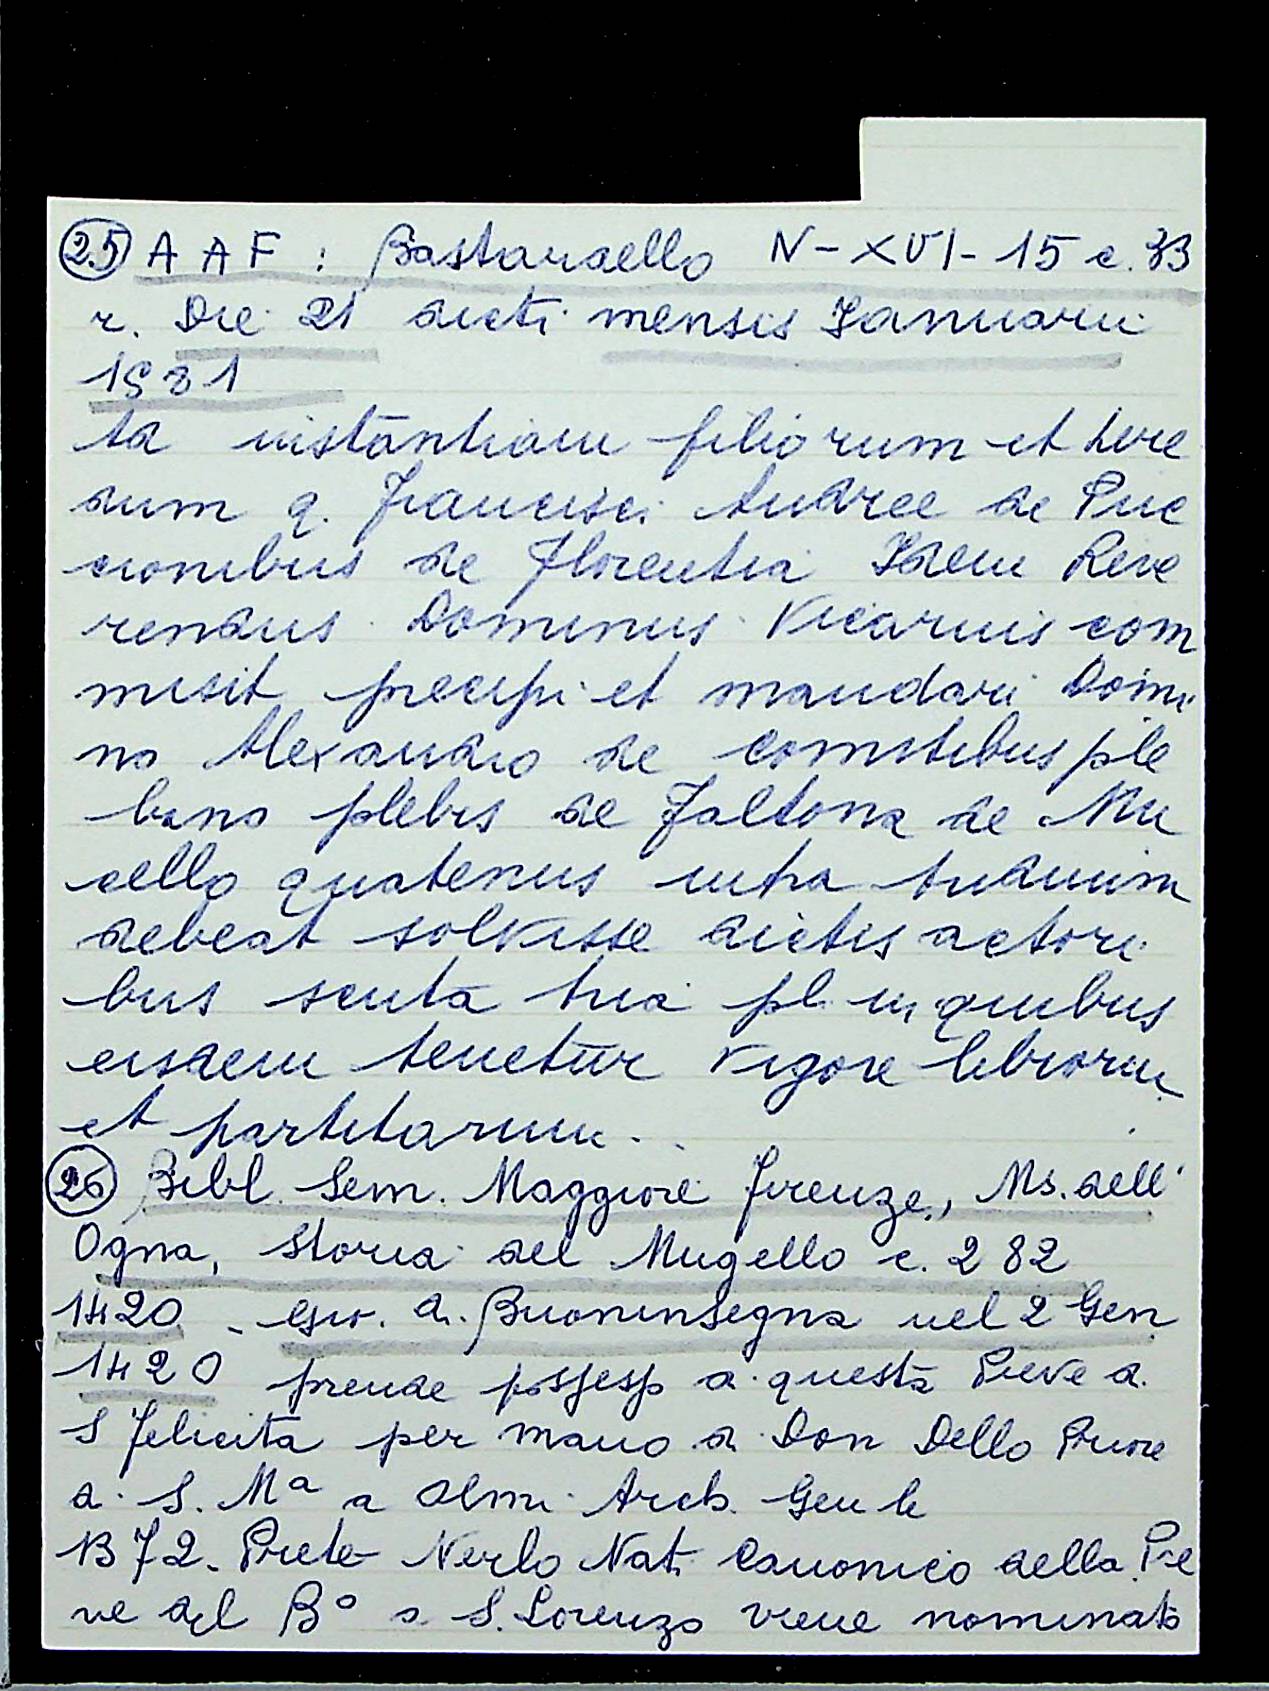 25 AAF: Bastardello N-XVI-15 c. 33
r. Die 21 dicti mensis Januarii
1581
Ad instantiam filiorum et here
dum q. Francisci Andree de Puc
cionibus de Florentia Idem Reve
rendus Dominus Vicarius com
misit precipi et mandari Domi
no Alexandro de Comitibus ple
bano plebis de Faltona de Mu
cello quatenus infra triduum
debeat solvisse dictis actori
bus scuta tria pl. in quibus
eisdem tenetur vigore librorum
et partitarum.
26 Bibl. Sem. Maggiore Firenze, Ms. dell'
Ogna, Storia del Mugello c. 282
1420 - Giov. di Buoninsegna nel 2 Gen
1420 prende possesso di questa Pieve di
S Felicita per mano di Don Dello Priore
di S. Mª a Olmi Arch. Gen le
1372. Prete Nerlo Nat. Canonico della Pie
ve del Bº a S. Lorenzo viene nominato